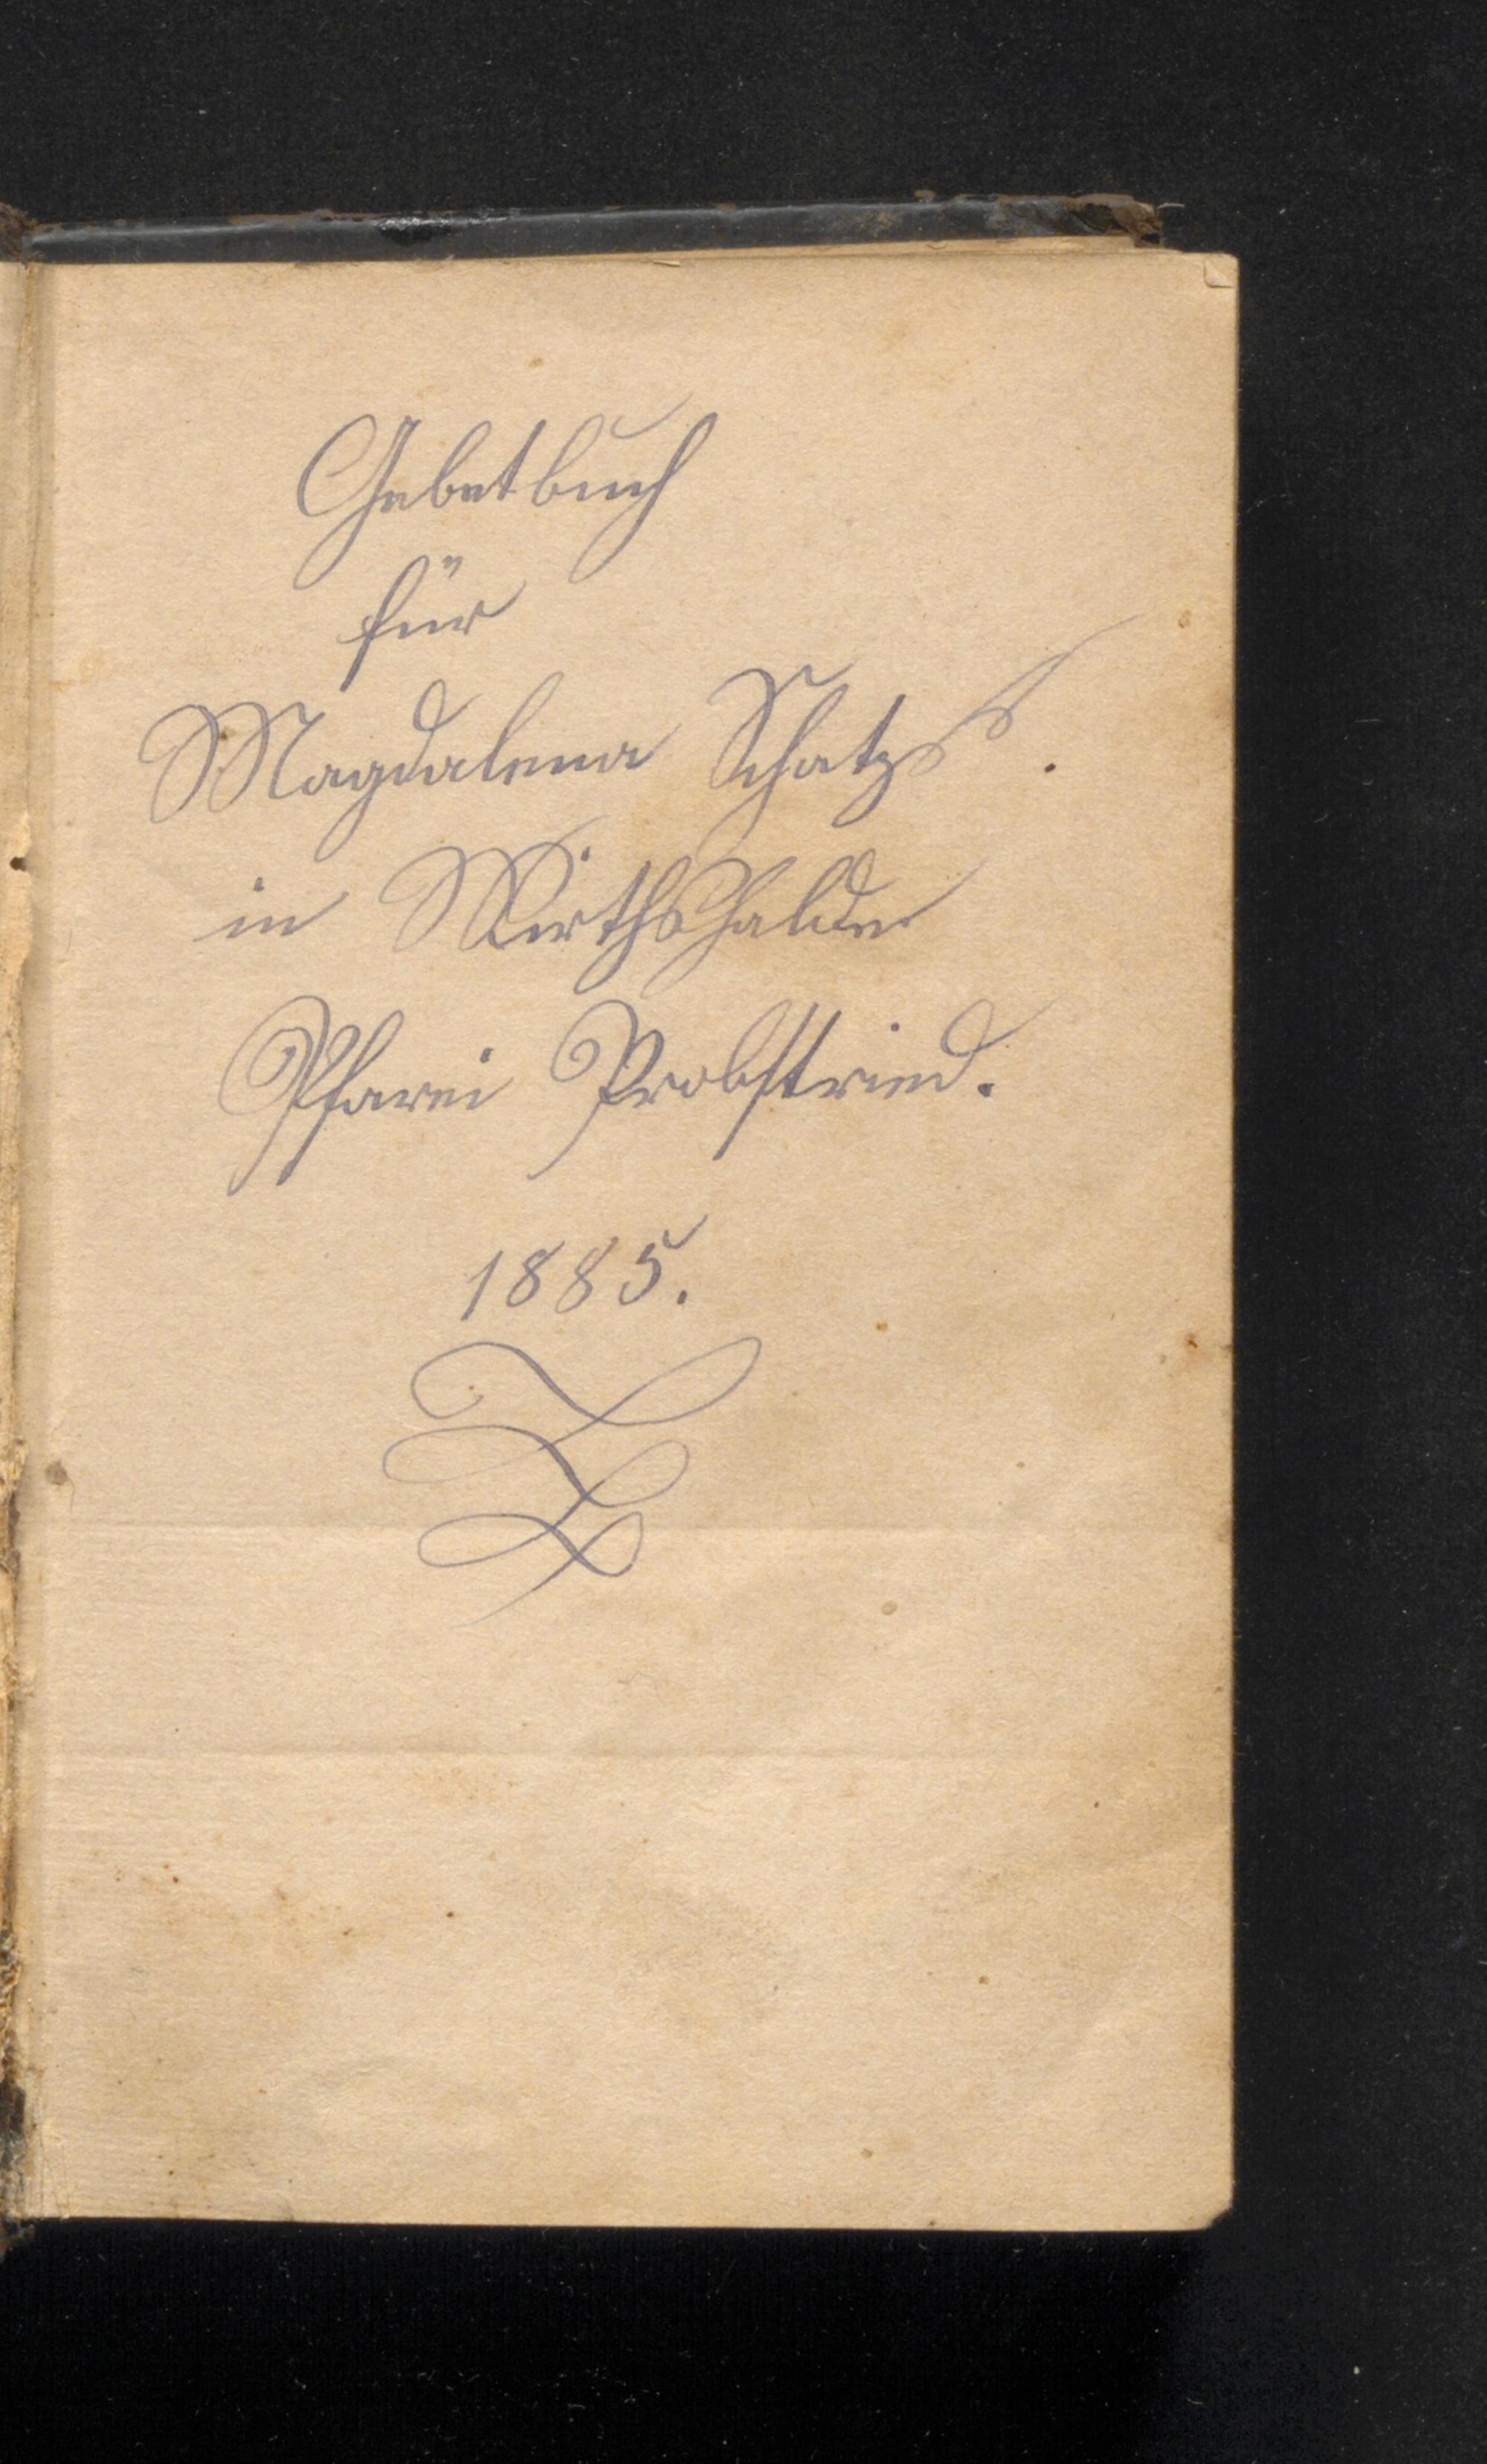 Gebetbuch
für
Magdalena Schatz
in Wirthshalde
Pfarei Probstried.
1885.